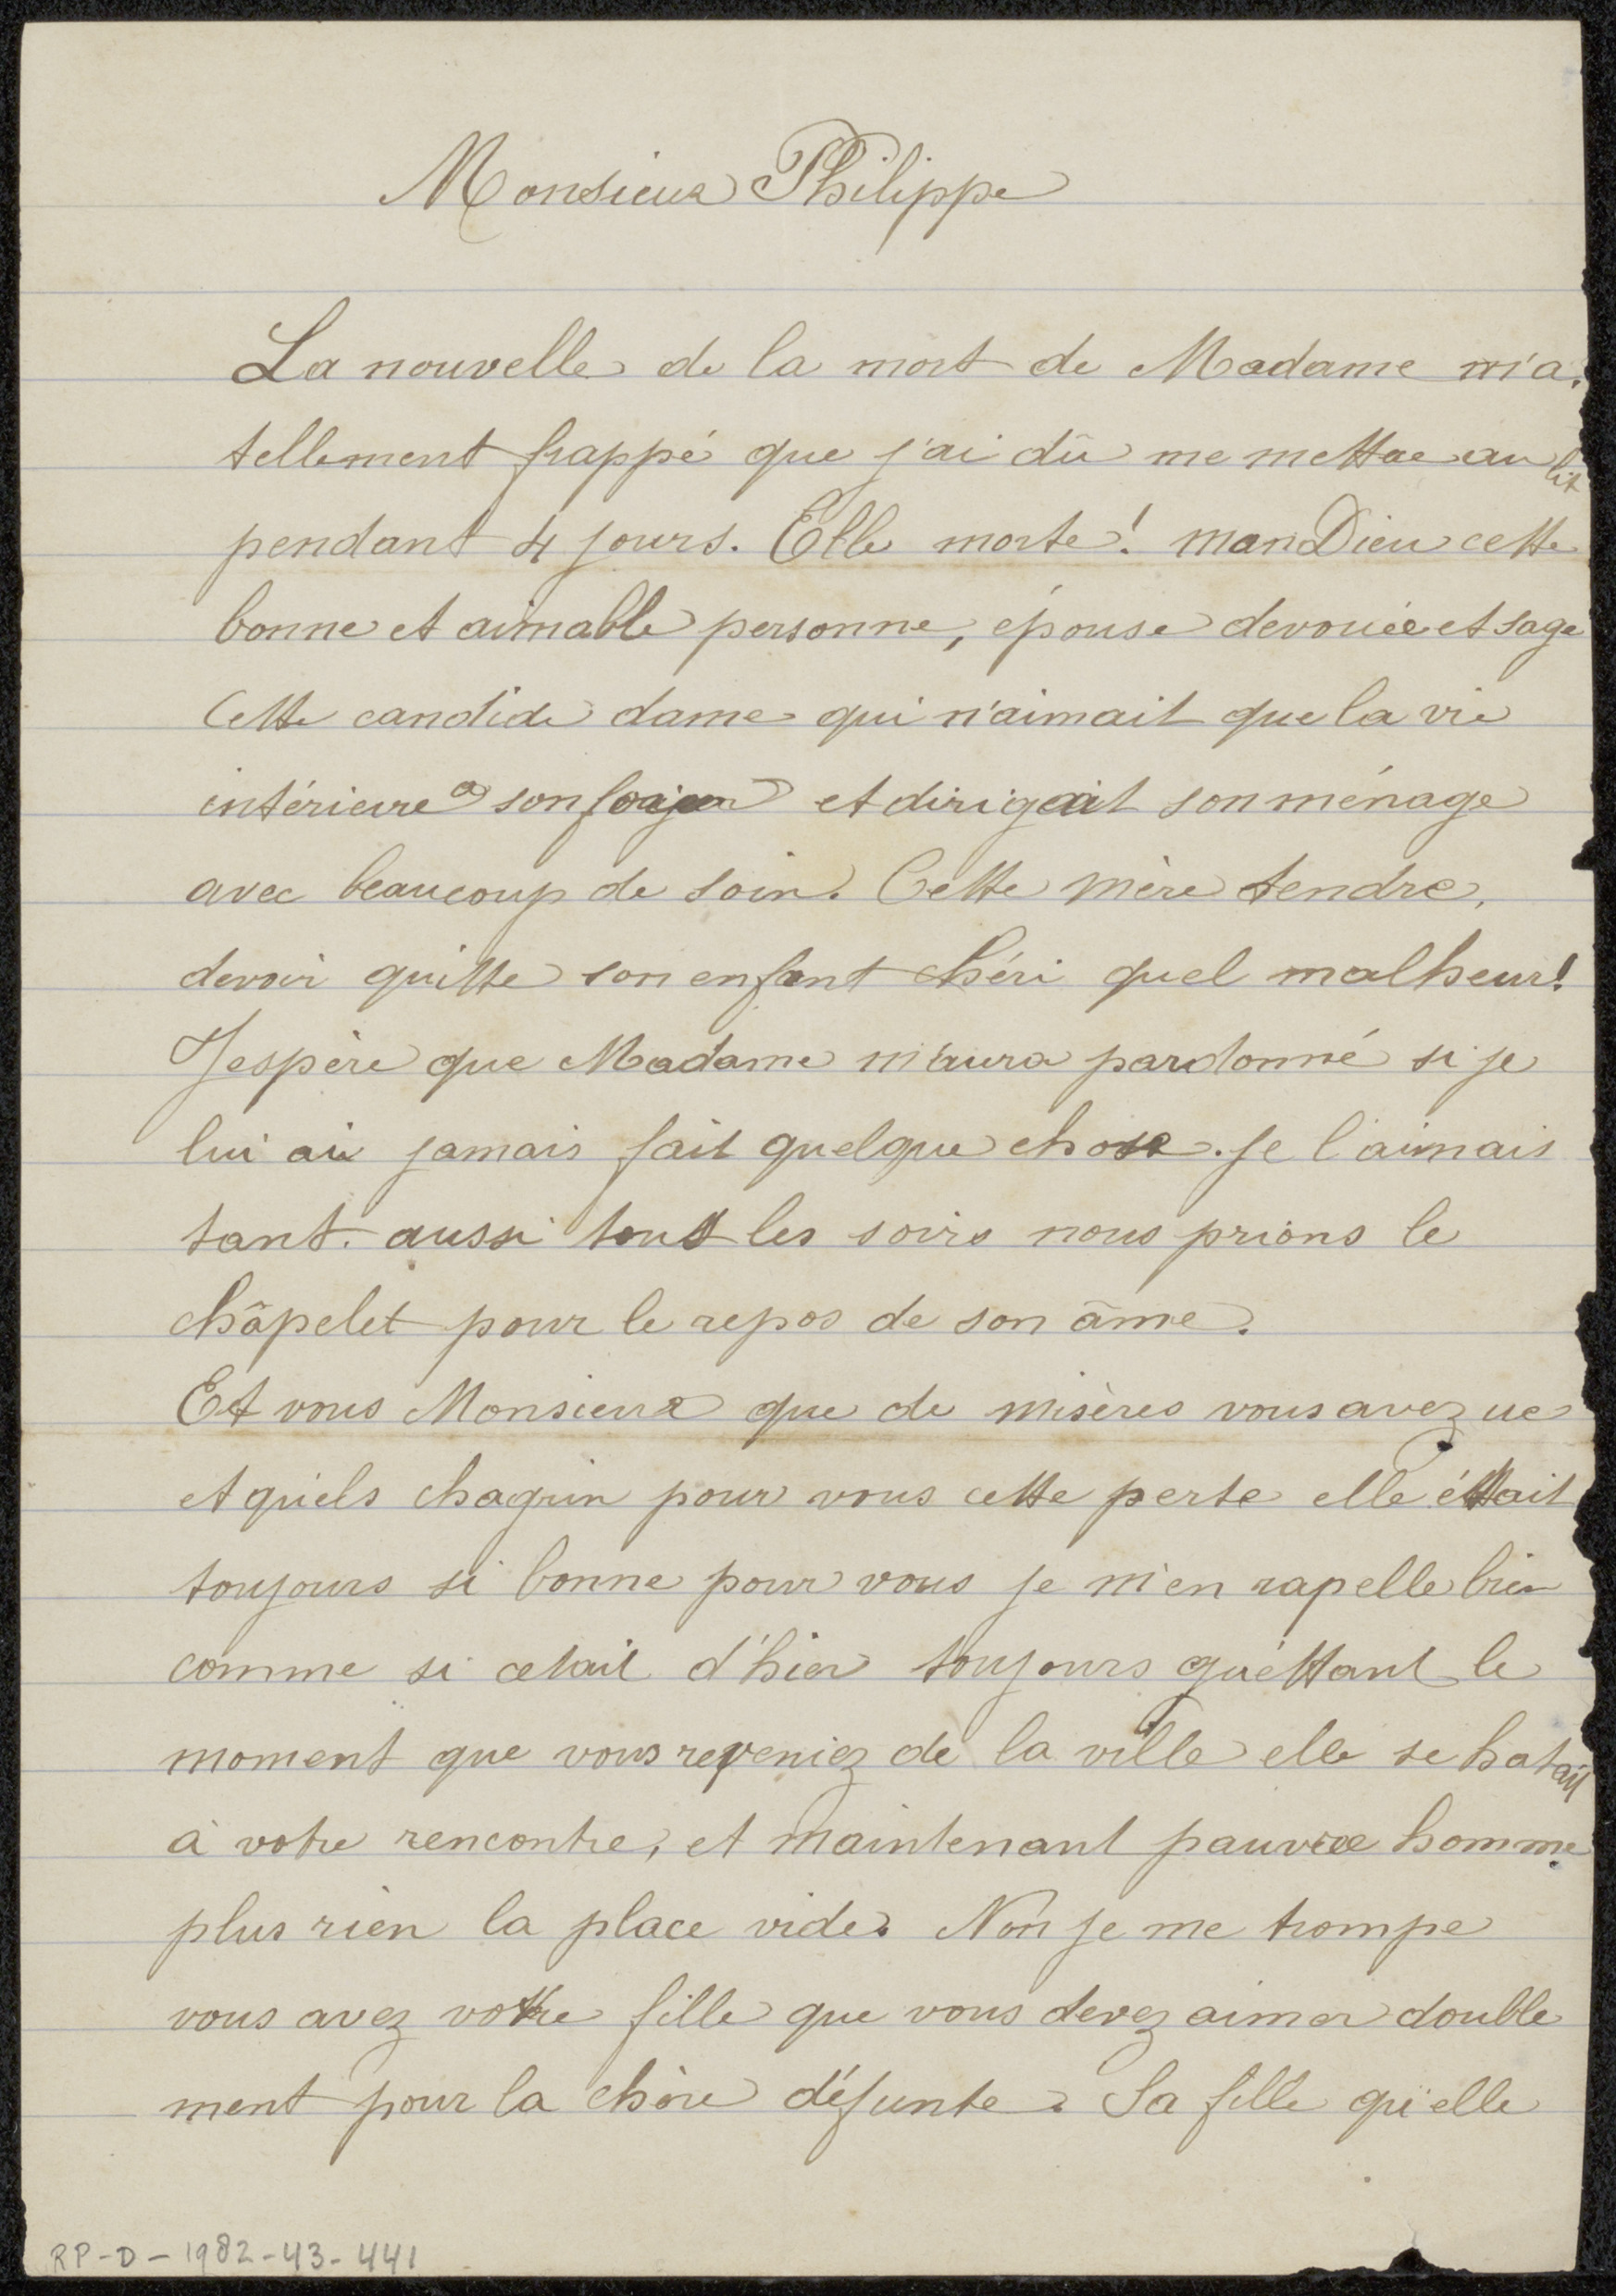 Monsieur Philippe
La nouvelle de la mort de Madame m'a
tellement frappé que j'ai dû me mettre au lit
pendant 4 jours. Elle morte! mon Dieu cette
bonne et aimable personne, épouse devouée et sage
Cette candide dame qui n'aimait que la vie
intérieure son et dirigeait son ménage
avec beaucoup de soin. Cette mère tendre,
devoir quitte son enfant chéri quel malheur!
J'espère que Madame m'aura pardonné si je
lui ai jamais fait quelque chose. je l'aimais
tant. aussi tout les soirs nous prions le
châpelet pour le repos de son âme.
Et vous Monsieur que de misères vous avez ue
et quels chagrin pour vous cette perte elle éttait
toujours si bonne pour vous je m'en rapelle bien
comme si cetait d'hier toujours quéttant le
moment que vous reveniez de la ville elle se hatait
à votre rencontre, et maintenant pauvre homme
plus rien la place vide. Non je me trompe
vous avez votre fille que vous devez aimer double
ment pour la chère défunte. Sa fille qu'elle
RP-D-1982-43-441